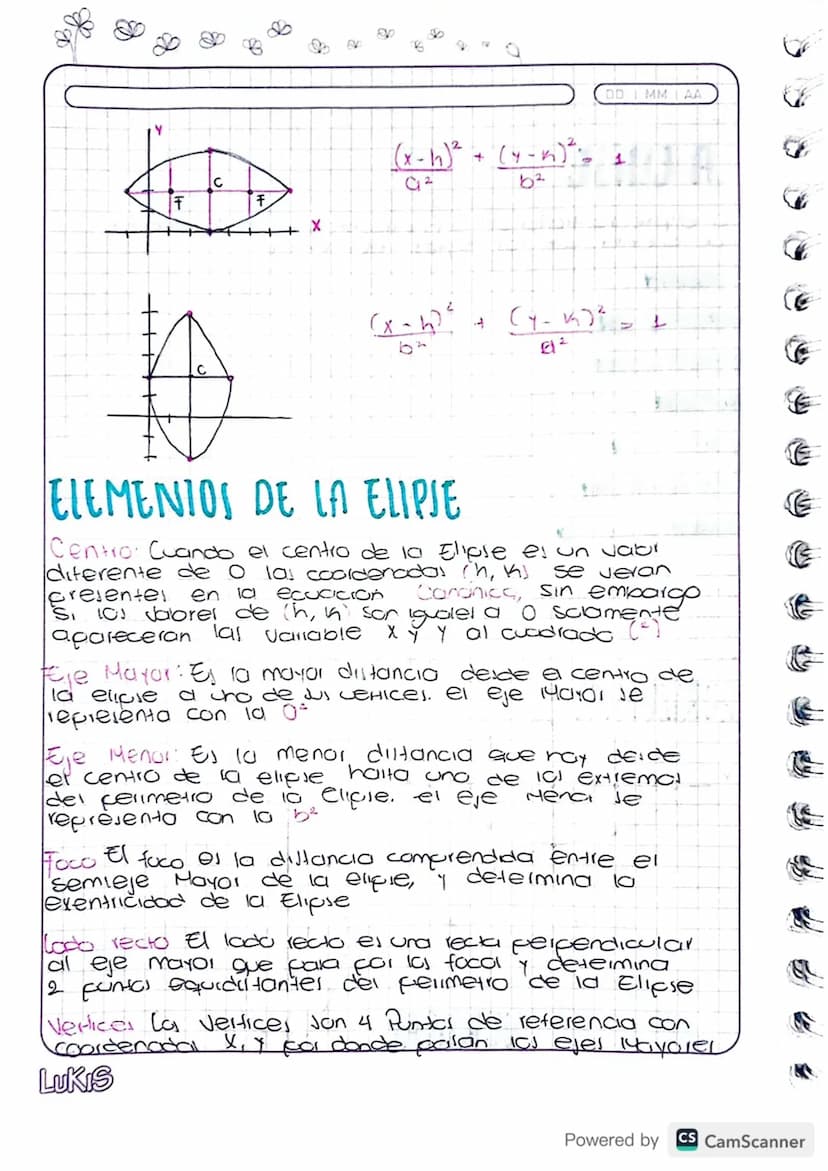 DD | MM | AA
Y
C
F
F
X
(x-h)² + (y-k)² = 1
a² b²
(x-h)² + (y-k)² = 1
b² a²
C
ELEMENTOS DE LA ELIPSE
Centro: Cuando el centro de la Elipse es un valor
diferente de 0 las coordenadas (h, k) se veran
presentes en la ecuacion Canonica, sin embargo
Si los valores de (h, k) son iguales a 0 solamente
apareceran las variable x y y al cuadrado (²)
Eje Mayor: Es la mayor distancia desde el centro de
la elipse a uno de sus vertices. el eje Mayor se
representa con la a²
Eje Menor: Es la menor distancia que hay desde
el centro de la elipse hasta uno de los extremos
del perimetro de la Elipse. el eje Menor se
representa con la b²
Foco El foco es la distancia comprendida entre el
semieje Mayor de la elipse, y determina la
exentricidad de la Elipse
Lado recto El lado recto es una recta perpendicular
al eje mayor que pasa por los focos y determina
2 puntos equidistantes del perimetro de la Elipse
Vertices Los Vertices son 4 Puntos de referencia con
coordenadas X, Y por donde pasan los ejes Mayores
LUKIS
Powered by CS CamScanner